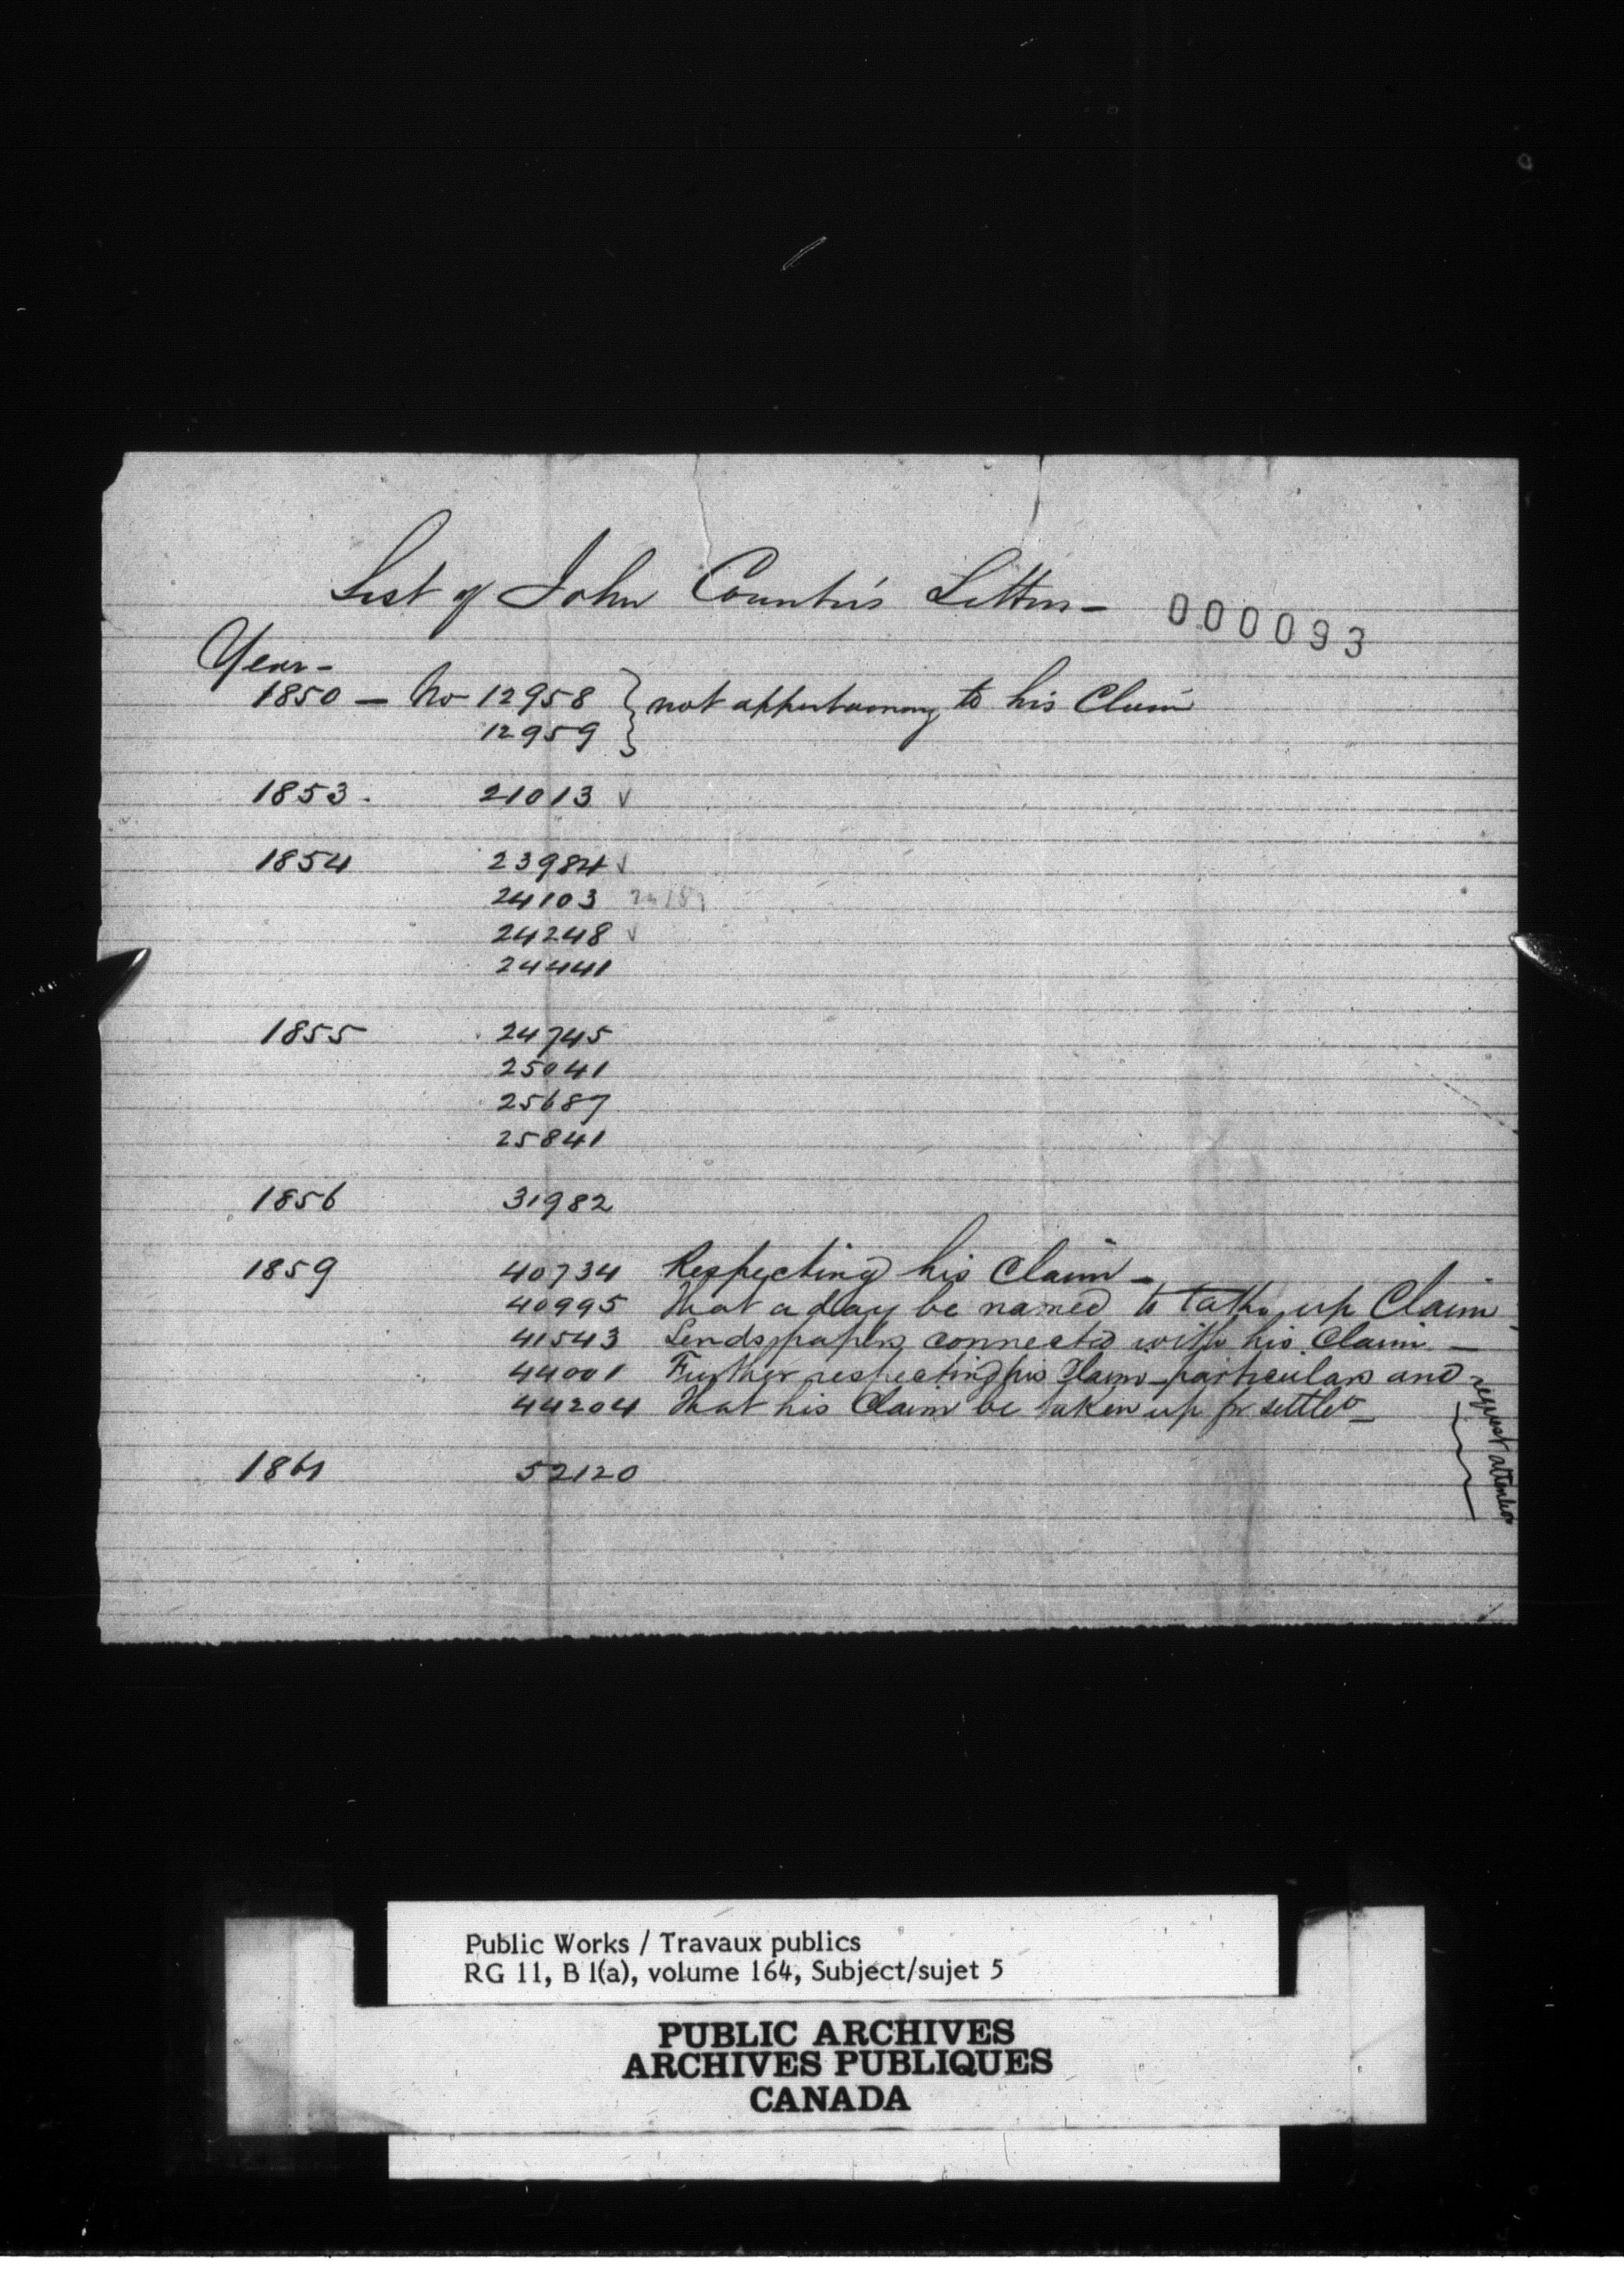 List of John Counter's Letters —
000093
Year —
1850 — No 12958 } not appertaining to his Claim
12959
1853. 21013 √
1854 23984 √
24103
24248 √
24441
1855 24745
25041
25687
25841
1856 31982
1859 40734 Respecting his Claim —
40995 That a day be named to take up Claim
41543 Sends papers connected with his Claim —
44001 Further respecting his Claim — particulars and request attention
44204 That his Claim be taken up for settlet —
1861 52120
Public Works / Travaux publics
RG 11, B 1(a), volume 164, Subject/sujet 5
PUBLIC ARCHIVES
ARCHIVES PUBLIQUES
CANADA